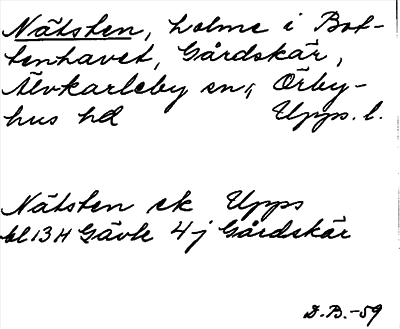 Nätsten, holme i Bot-
tenhavet, Gårdskär,
Älvkarleby sn, Örby-
hus hd Upps. l.
Nätsten ek Upps
bl 13 H Gävle 4 j Gårdskär
D.B.-59